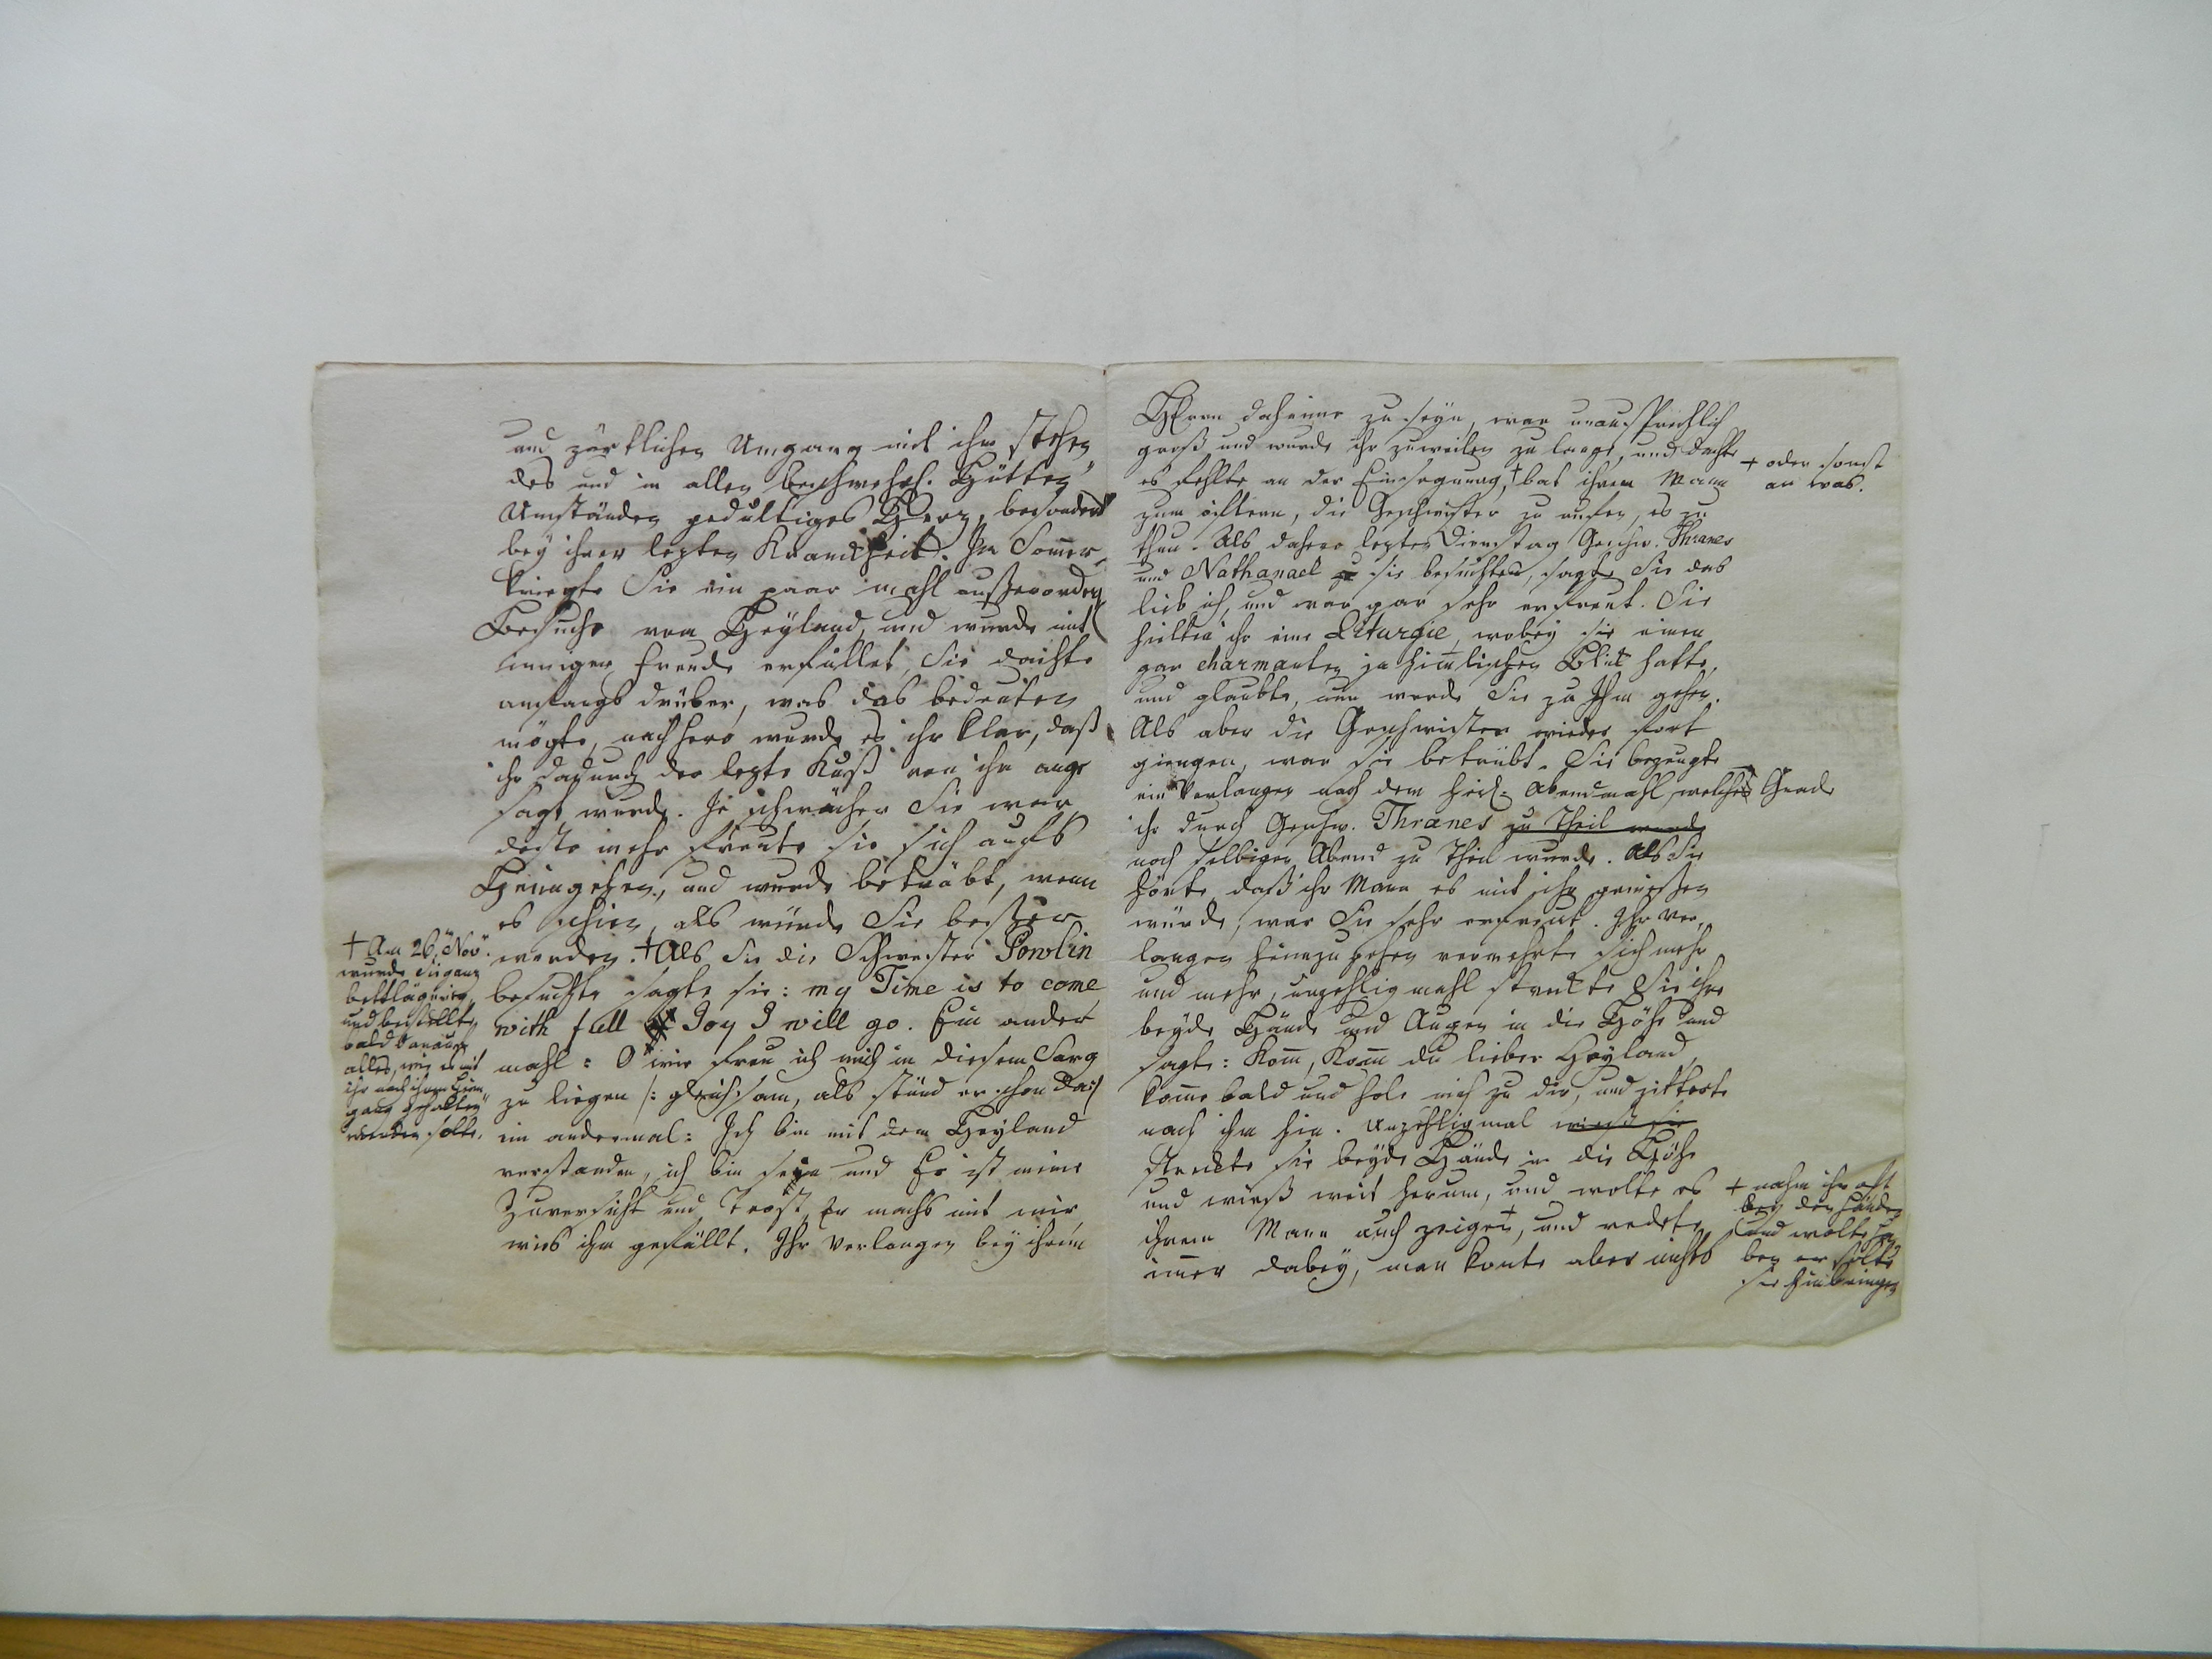 und zärtlichen Umgang mit ihm stehen
des und in allen beschwehrl. Hütten
Umständen gedultiges Herz, besonders
bey ihrer lezten Kranckheit. Im Somer
kriegte Sie ein paar mahl außerorden
Besuche vom Heyland, und wurde mit
inniger Freude erfüllet, Sie dachte
anfangs drüber, was das bedeuten
mögte, nachhero wurde es ihr klar, daß
ihr dadurch der lezte Kuß von ihm ange
sagt wurde. Je schwächer Sie war
desto mehr freute sie sich aufs
Heimgehen, und wurde betrübt, wenn
es schien, als würde Sie beßer
werden. † Als Sie die Schwester Powlin
besuchte sagte sie: my Time is to come
with full Joy I will go. Ein ander
mahl: O wie freu ich mich in diesem Sarg
zu liegen /: gleichsam, als stünd er schon da :/
ein andermal: Ich bin mit dem Heyland
verstanden, ich bin sein und Er ist meine
Zuversicht und Trost, Er machs mit mir
wies ihm gefällt. Ihr Verlangen bey ihrem
† Am 26 Nov.
wurde Sie ganz
bettlägerig,
und bestellte
bald darauf
alles, wie es mit
ihr nach ihrem Heim
gang gehalten
werden solte.
HErrn daheime zu seyn, war unaussprechlich
groß und wurde ihr zuweilen zu lange, und dachte
es fehlte an der Einsegnung, † bat ihren Mann
zum öftern, die Geschwister zu rufen, es zu
thun. Als dahero lezten Dienstag Geschw. Thranes
und Nathanael sie besuchten, sagte Sie das
lieb ich, und war gar sehr erfreut. Sie
hielten ihr eine Liturgie, wobey sie einen
gar charmanten ja himlischen Blick hatte,
und glaubte, nun werde Sie zu Ihm gehen.
Als aber die Geschwister wieder fort
giengen, war sie betrübt. Sie bezeugte
ein Verlangen nach dem heil. Abendmahl, welche Gnade
ihr durch Geschw. Thranes zu Theil wurde
noch selbigen Abend zu Theil wurde. Als Sie
hörte, daß ihr Mann es mit ihr geniessen
würde, war Sie sehr erfreut. Ihr Ver
langen heimzugehen vermehrte sich mehr
und mehr, unzehlig mahl streckte Sie ihre
beyde Hände und Augen in die Höhe und
sagte: Kom, Kom du lieber Heyland,
kome bald und hole mich zu dir, und zitterte
nach ihm hin. Unzehligmal wieß sie
streckte sie beyde Hände in die Höhe
und wieß weit herum, und wolte es
ihrem Mann auch zeigen †, und redete
imer dabey, man konte aber nichts
† oder sonst
an was.
† nahm ihn oft
bey den Händen
und wolte ha
ben er solte
sie hinbringen